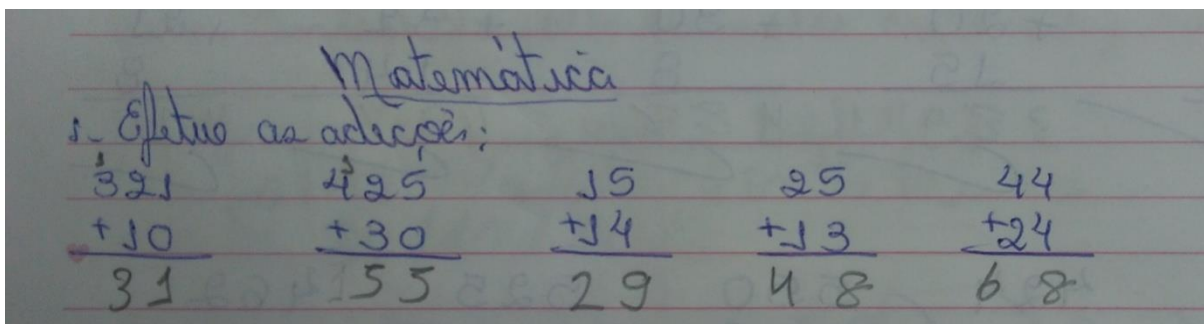 Matemática
1- Efetue as adições:
321 425 15 25 44
+10 +30 +14 +13 +24
31 55 29 48 68